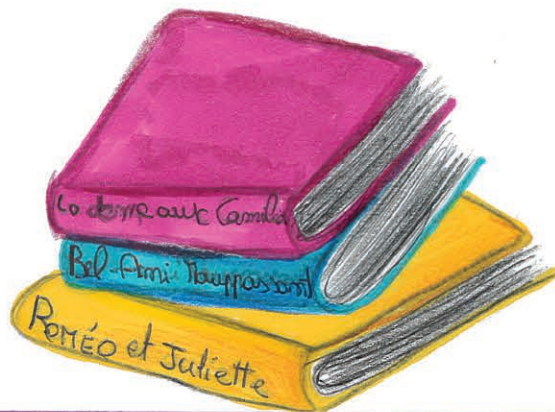 La dame aux Camélia
Bel-Ami Mauppassant
ROMÉO et Juliette